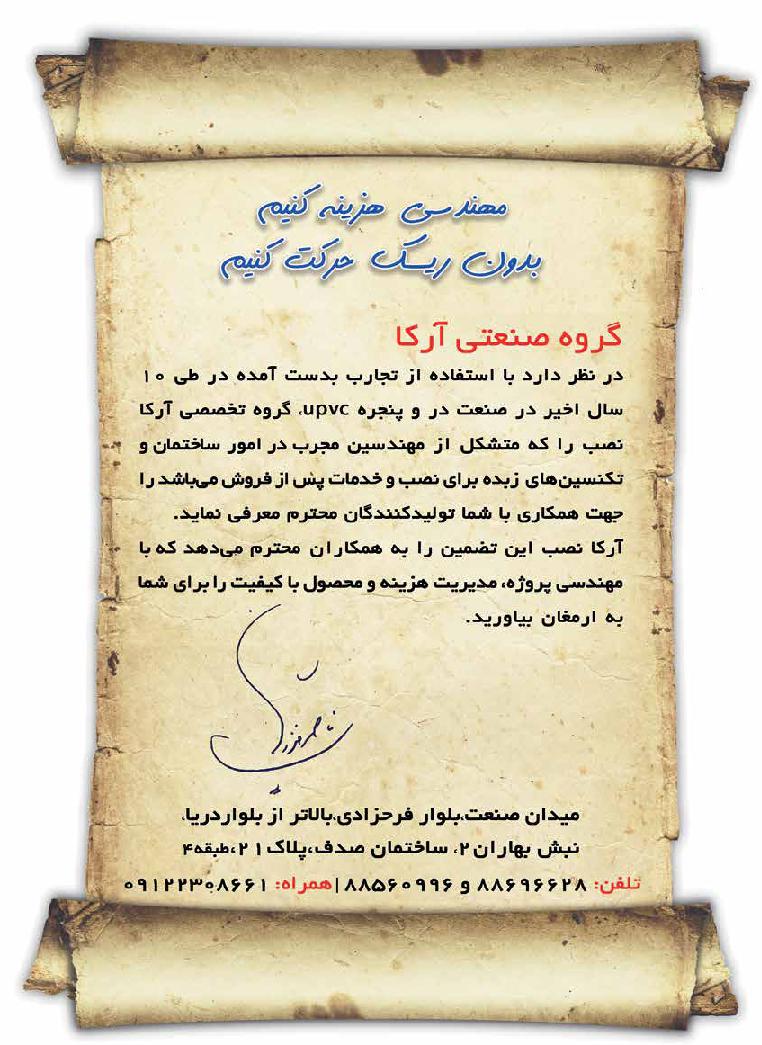 مهندسی هزینه کنیم
بدون ریسک حرکت کنیم
گروه صنعتی آرکا
در نظر دارد با استفاده از تجارب بدست آمده در طی ۱۰
سال اخیر در صنعت در و پنجره upvc، گروه تخصصی آرکا
نصب را که متشکل از مهندسین مجرب در امور ساختمان و
تکنسین‌های زبده برای نصب و خدمات پس از فروش می‌باشد را
جهت همکاری با شما تولیدکنندگان محترم معرفی نماید.
آرکا نصب این تضمین را به همکاران محترم می‌دهد که با
مهندسی پروژه، مدیریت هزینه و محصول با کیفیت را برای شما
به ارمغان بیاورید.
میدان صنعت،بلوار فرحزادی،بالاتر از بلواردریا،
نبش بهاران۲، ساختمان صدف،پلاک۲۱،طبقه۴
تلفن: ۸۸۶۹۶۶۲۸ و ۸۸۵۶۰۹۹۶ | همراه: ۰۹۱۲۲۳۰۸۶۶۱